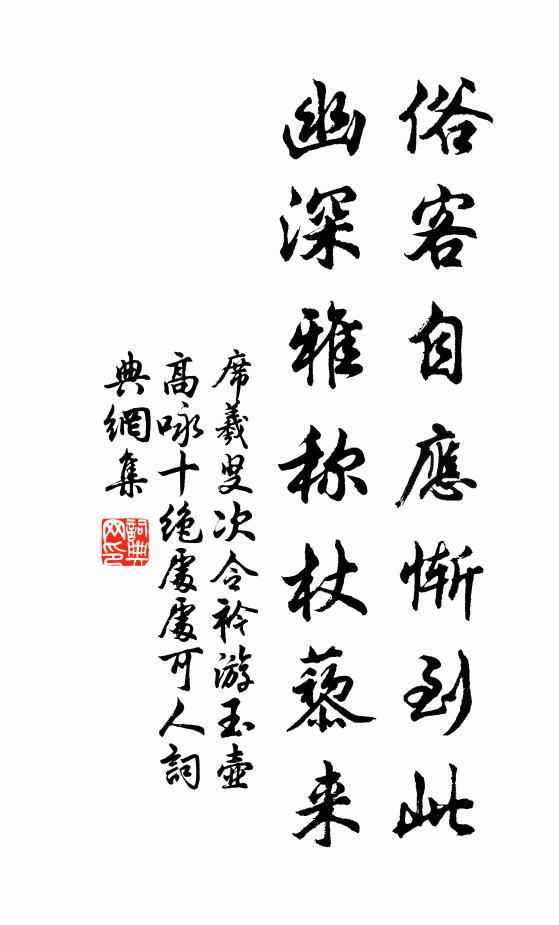 俗客自應慚到此
幽深雅称杖藜来
席羲叟次令衿游玉壺
高咏十绝處處可人詞
典網集
詞典网印